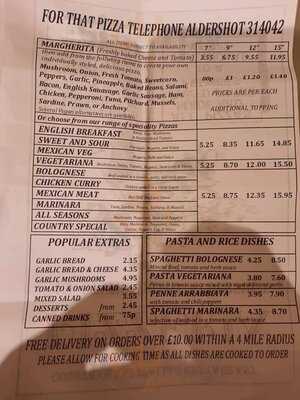 FOR THAT PIZZA TELEPHONE ALDERSHOT 314042
ALL ITEMS SUBJECT TO AVAILABILITY
MARGHERITA (Freshly baked Cheese and Tomato)
7" 9" 12" 15"
3.55 6.75 9.55 11.95
then add from the following range to create your own
individually styled, delicious pizza.
Mushroom, Onion, Fresh Tomato, Sweetcorn,
Peppers, Garlic, Pineapple, Baked Beans, Salami,
Bacon, English Sausage, Garlic Sausage, Ham,
Chicken, Pepperoni, Tuna, Pilchard, Mussels,
Sardine, Prawn, or Anchovy
£1 £1.20 £1.40
PRICES ARE PER EACH
ADDITIONAL TOPPING
Or choose from our range of speciality Pizzas
ENGLISH BREAKFAST
SWEET AND SOUR
MEXICAN VEG
5.25 8.35 11.65 14.85
VEGETARIANA
BOLOGNESE
5.25 8.70 12.00 15.50
CHICKEN CURRY
MEXICAN MEAT
MARINARA
5.25 8.75 12.35 15.95
ALL SEASONS
COUNTRY SPECIAL
POPULAR EXTRAS
GARLIC BREAD 2.15
GARLIC BREAD & CHEESE 4.35
GARLIC MUSHROOMS 4.95
TOMATO & ONION SALAD 2.45
MIXED SALAD 3.55
DESSERTS from 2.45
CANNED DRINKS from 75p
PASTA AND RICE DISHES
SPAGHETTI BOLOGNESE 4.25 8.50
Minced Beef, tomato and herb sauce
PASTA VEGETARIANA 3.80 7.60
PENNE ARRABBIATA 3.95 7.90
with tomato and chilli peppers
SPAGHETTI MARINARA 4.35 8.70
selection of seafood in a tomato and herb sauce
FREE DELIVERY ON ORDERS OVER £10.00 WITHIN A 4 MILE RADIUS
PLEASE ALLOW FOR COOKING TIME AS ALL DISHES ARE COOKED TO ORDER